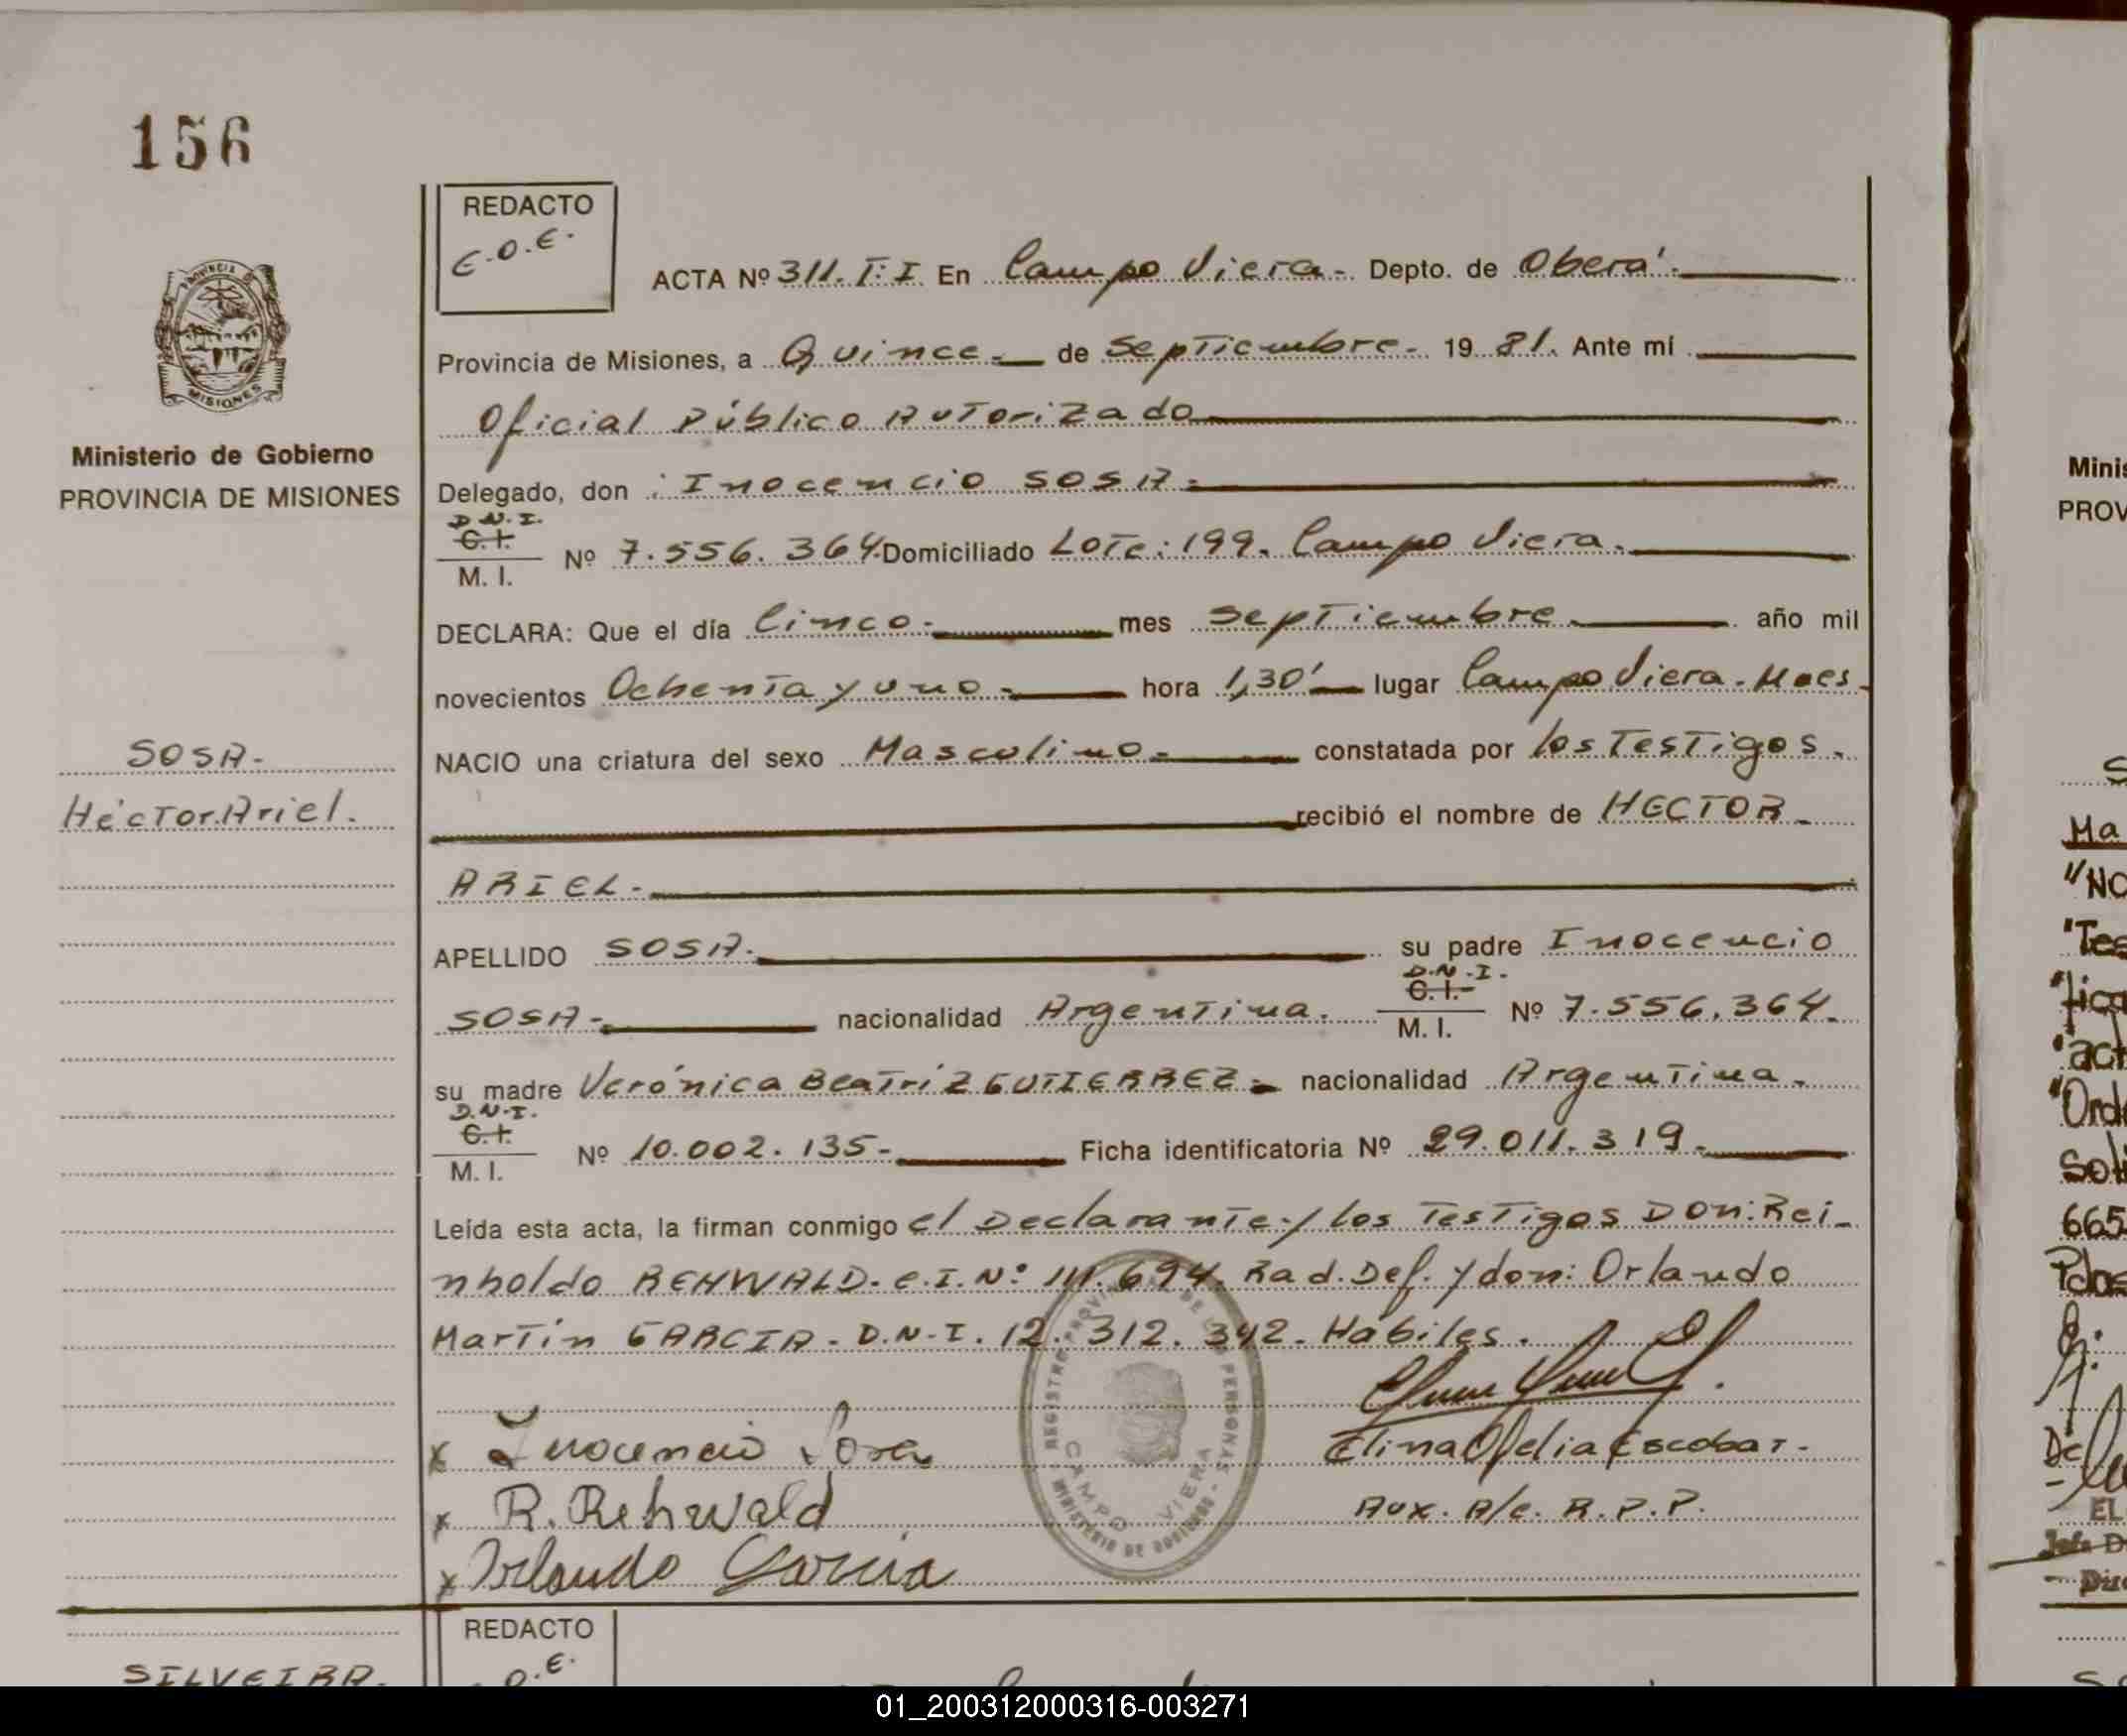 156
REDACTO
E.O.E.
ACTA Nº 311. T: I En Campo Viera.- Depto. de Oberá.-
Provincia de Misiones, a Quince.- de Septiembre.- 19 81. Ante mí
Oficial Público Autorizado
Delegado, don : Inocencio SOSA.-
D.N.I.
C.I.
M. I.
Nº 7.556.364. Domiciliado Lote: 199. Campo Viera.-
PROVINCIA DE
MISIONES
Ministerio de Gobierno
PROVINCIA DE MISIONES
DECLARA: Que el día Cinco.- mes Septiembre.- año mil
novecientos Ochenta y uno.- hora 1,30' lugar Campo Viera.- Mnes.-
SOSA.-
Héctor Ariel.
NACIO una criatura del sexo Masculino.- constatada por los Testigos.-
recibió el nombre de HECTOR.-
ARIEL.-
APELLIDO SOSA.- su padre Inocencio
SOSA.- nacionalidad Argentina.
D.N.I.
C.I.
M. I.
Nº 7.556.364.-
su madre Verónica Beatríz GUTIERREZ.- nacionalidad Argentina.-
D.N.I.
C.I.
M. I.
Nº 10.002.135.- Ficha identificatoria Nº 29.011.319.-
Leída esta acta, la firman conmigo el Declarante y los Testigos Don: Rei-
nholdo REHWALD. C.I. Nº 111.694. Rad. Def. y don: Orlando
Martín GARCIA. D.N.I. 12.312.342. Hábiles.
x Inocencio Sosa
x R. Rehwald
x Orlando Garcia
Elina Ofelia Escobar.
Aux. A/c. R.P.P.
REGISTRO PROVINCIAL DE LAS PERSONAS
CAMPO VIERA
MINISTERIO DE GOBIERNO
REDACTO
O.E.
SILVEIRA.
Minis
PROV
Ma
"No
"Tes
"fica
"act
"Ord
Soli
665
Pdas
De
EL
Jefe D
Dire
01_200312000316-003271